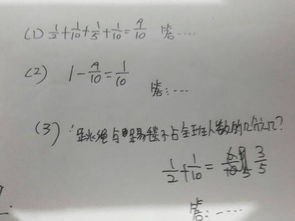 (1) 1/2+1/10+1/5+1/10=9/10 答:....
(2) 1-9/10=1/10
答:...
(3) 跳绳与踢毽子占全班人数的几分之几?
1/2+1/10= 3/5
答:.....